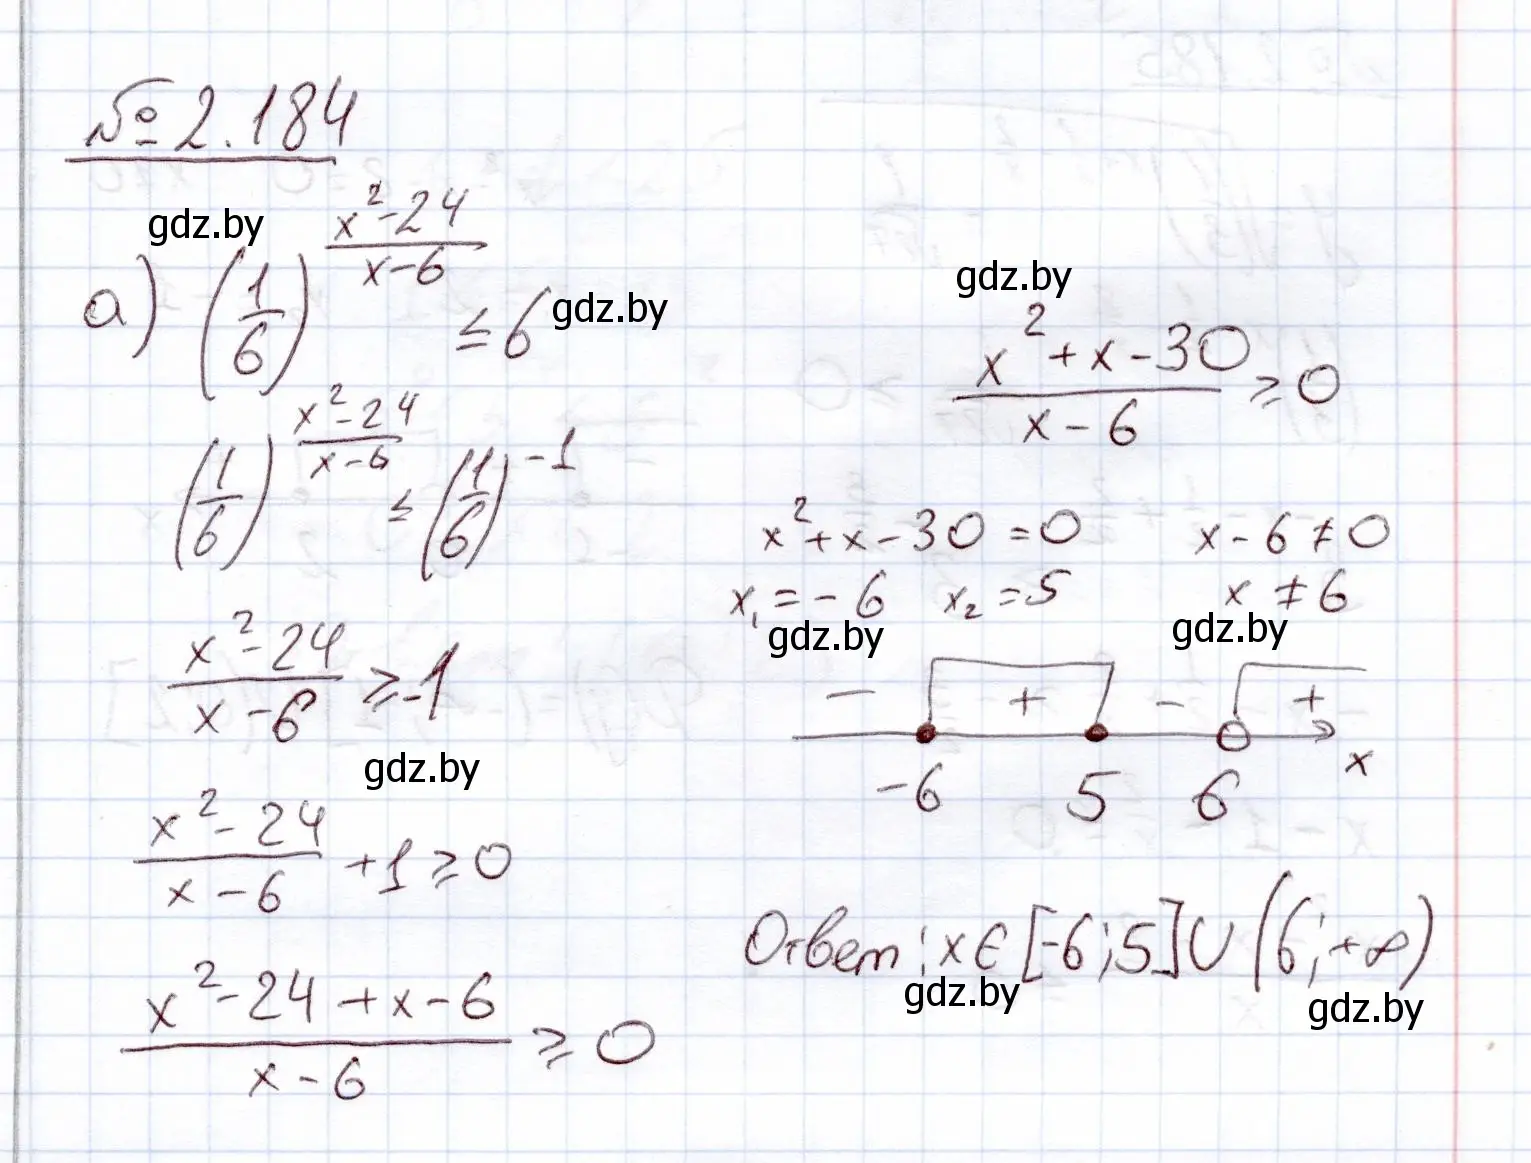 № 2.184
gdz.by
а) (1/6)^((x²-24)/(x-6)) ≤ 6
gdz.by
(1/6)^((x²-24)/(x-6)) ≤ (1/6)^(-1)
(x²-24)/(x-6) ≥ -1
gdz.by
(x²-24)/(x-6) + 1 ≥ 0
(x²-24+x-6)/(x-6) ≥ 0
gdz.by
(x²+x-30)/(x-6) ≥ 0
x²+x-30 = 0 x-6 ≠ 0
x₁ = -6 x₂ = 5 x ≠ 6
gdz.by gdz.by
- + - +
-6 5 6 x
Ответ: x ∈ [-6;5] ∪ (6;+∞)
gdz.by gdz.by